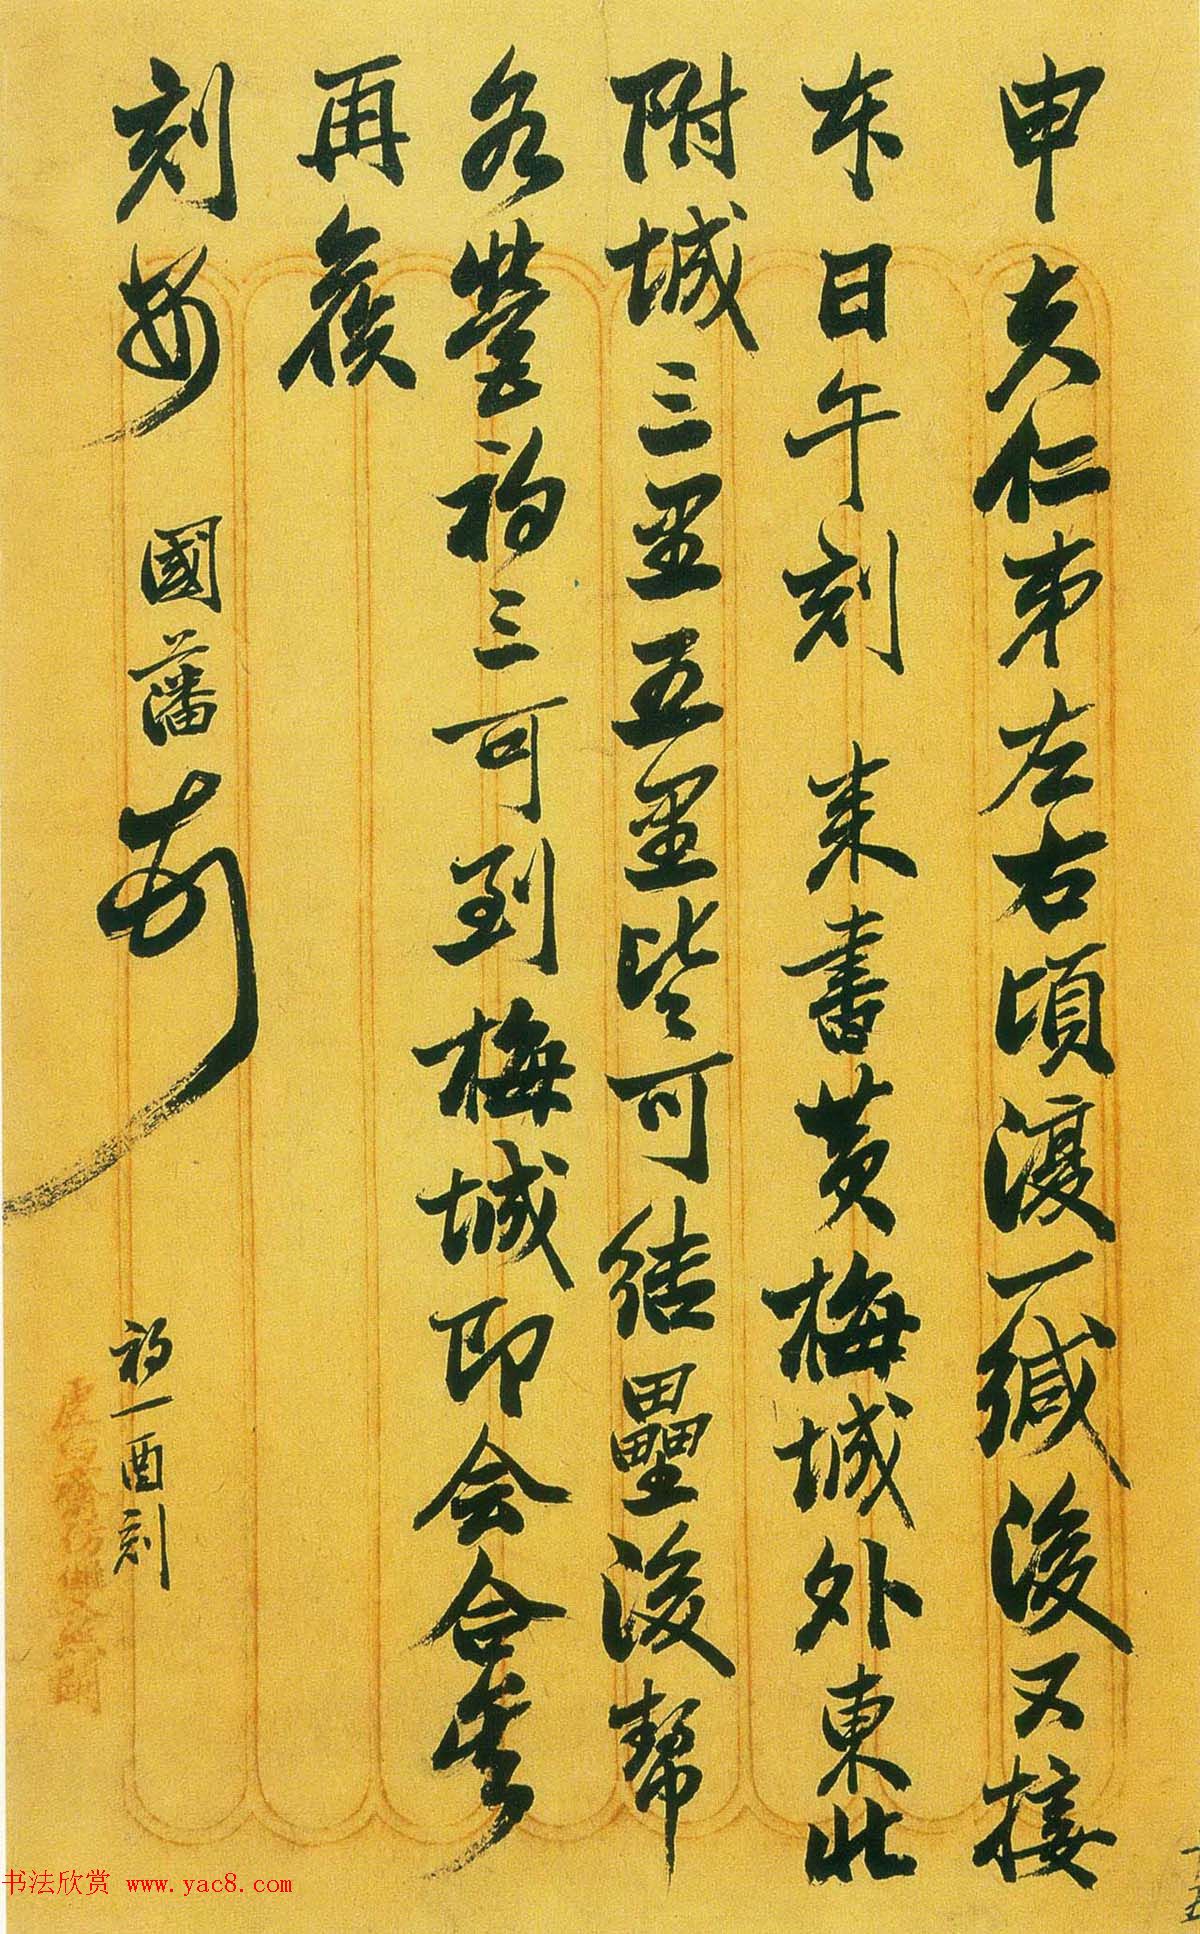 申夫仁弟左右頃復一緘後又接
本日午刻來書黃梅城外東北
附城三里五里皆可結壘後幫
各營初三可到梅城即会合矣
再候
刻安 國藩頓
初一酉刻
書法欣赏 www.yac8.com